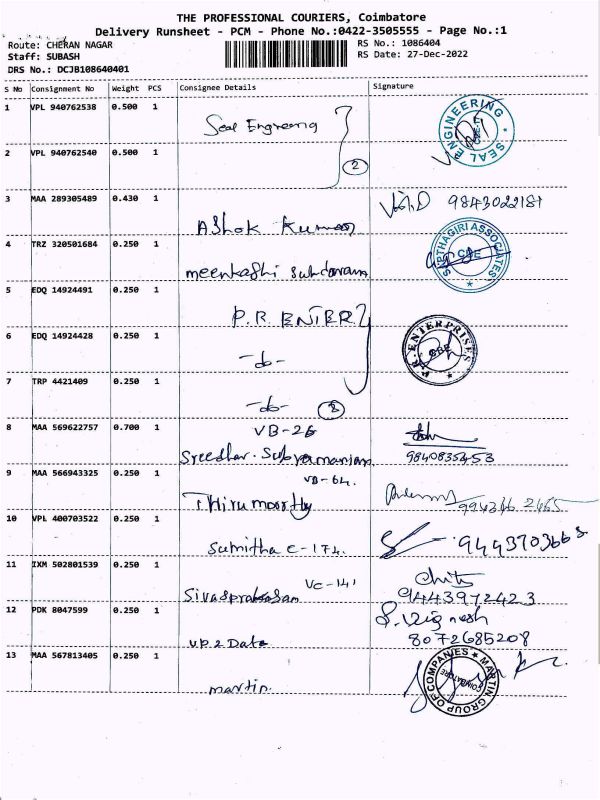 THE PROFESSIONAL COURIERS, Coimbatore
Delivery Runsheet - PCM - Phone No.:0422-3505555 - Page No.:1
Route: CHERAN NAGAR
Staff: SUBASH
DRS No.: DCJB108640401
RS No.: 1086404
RS Date: 27-Dec-2022
S No Consignment No Weight PCS Consignee Details Signature
1 VPL 940762538 0.500 1 Seal Engineering
SEAL ENGINEERING CBE
2 VPL 940762540 0.500 1 2
3 MAA 289305489 0.430 1 Ashok Kumar 9843022181
4 TRZ 320501684 0.250 1 meenkashi Sundaram
SAPTHAGIRI ASSOCIATES CBE
5 EDQ 14924491 0.250 1 P.R. ENTER
6 EDQ 14924428 0.250 1 -do-
P.R. ENTERPRISES CBE
7 TRP 4421409 0.250 1 -do- 3
8 MAA 569622757 0.700 1 VB-26
Sreedhar. Subramaniam 9840835453
9 MAA 566943325 0.250 1 VB-64.
Thirumoorthy
10 VPL 400703522 0.250 1 Sumitha C-174.
11 IXM 502801539 0.250 1 VC-141
Sivasprakasam Chitra
9443972423
12 PDK 8047599 0.250 1 V.P.2 Data S. Vignesh
8072685208
13 MAA 567813405 0.250 1 martin.
MARTIN GROUP OF COMPANIES COIMBATORE